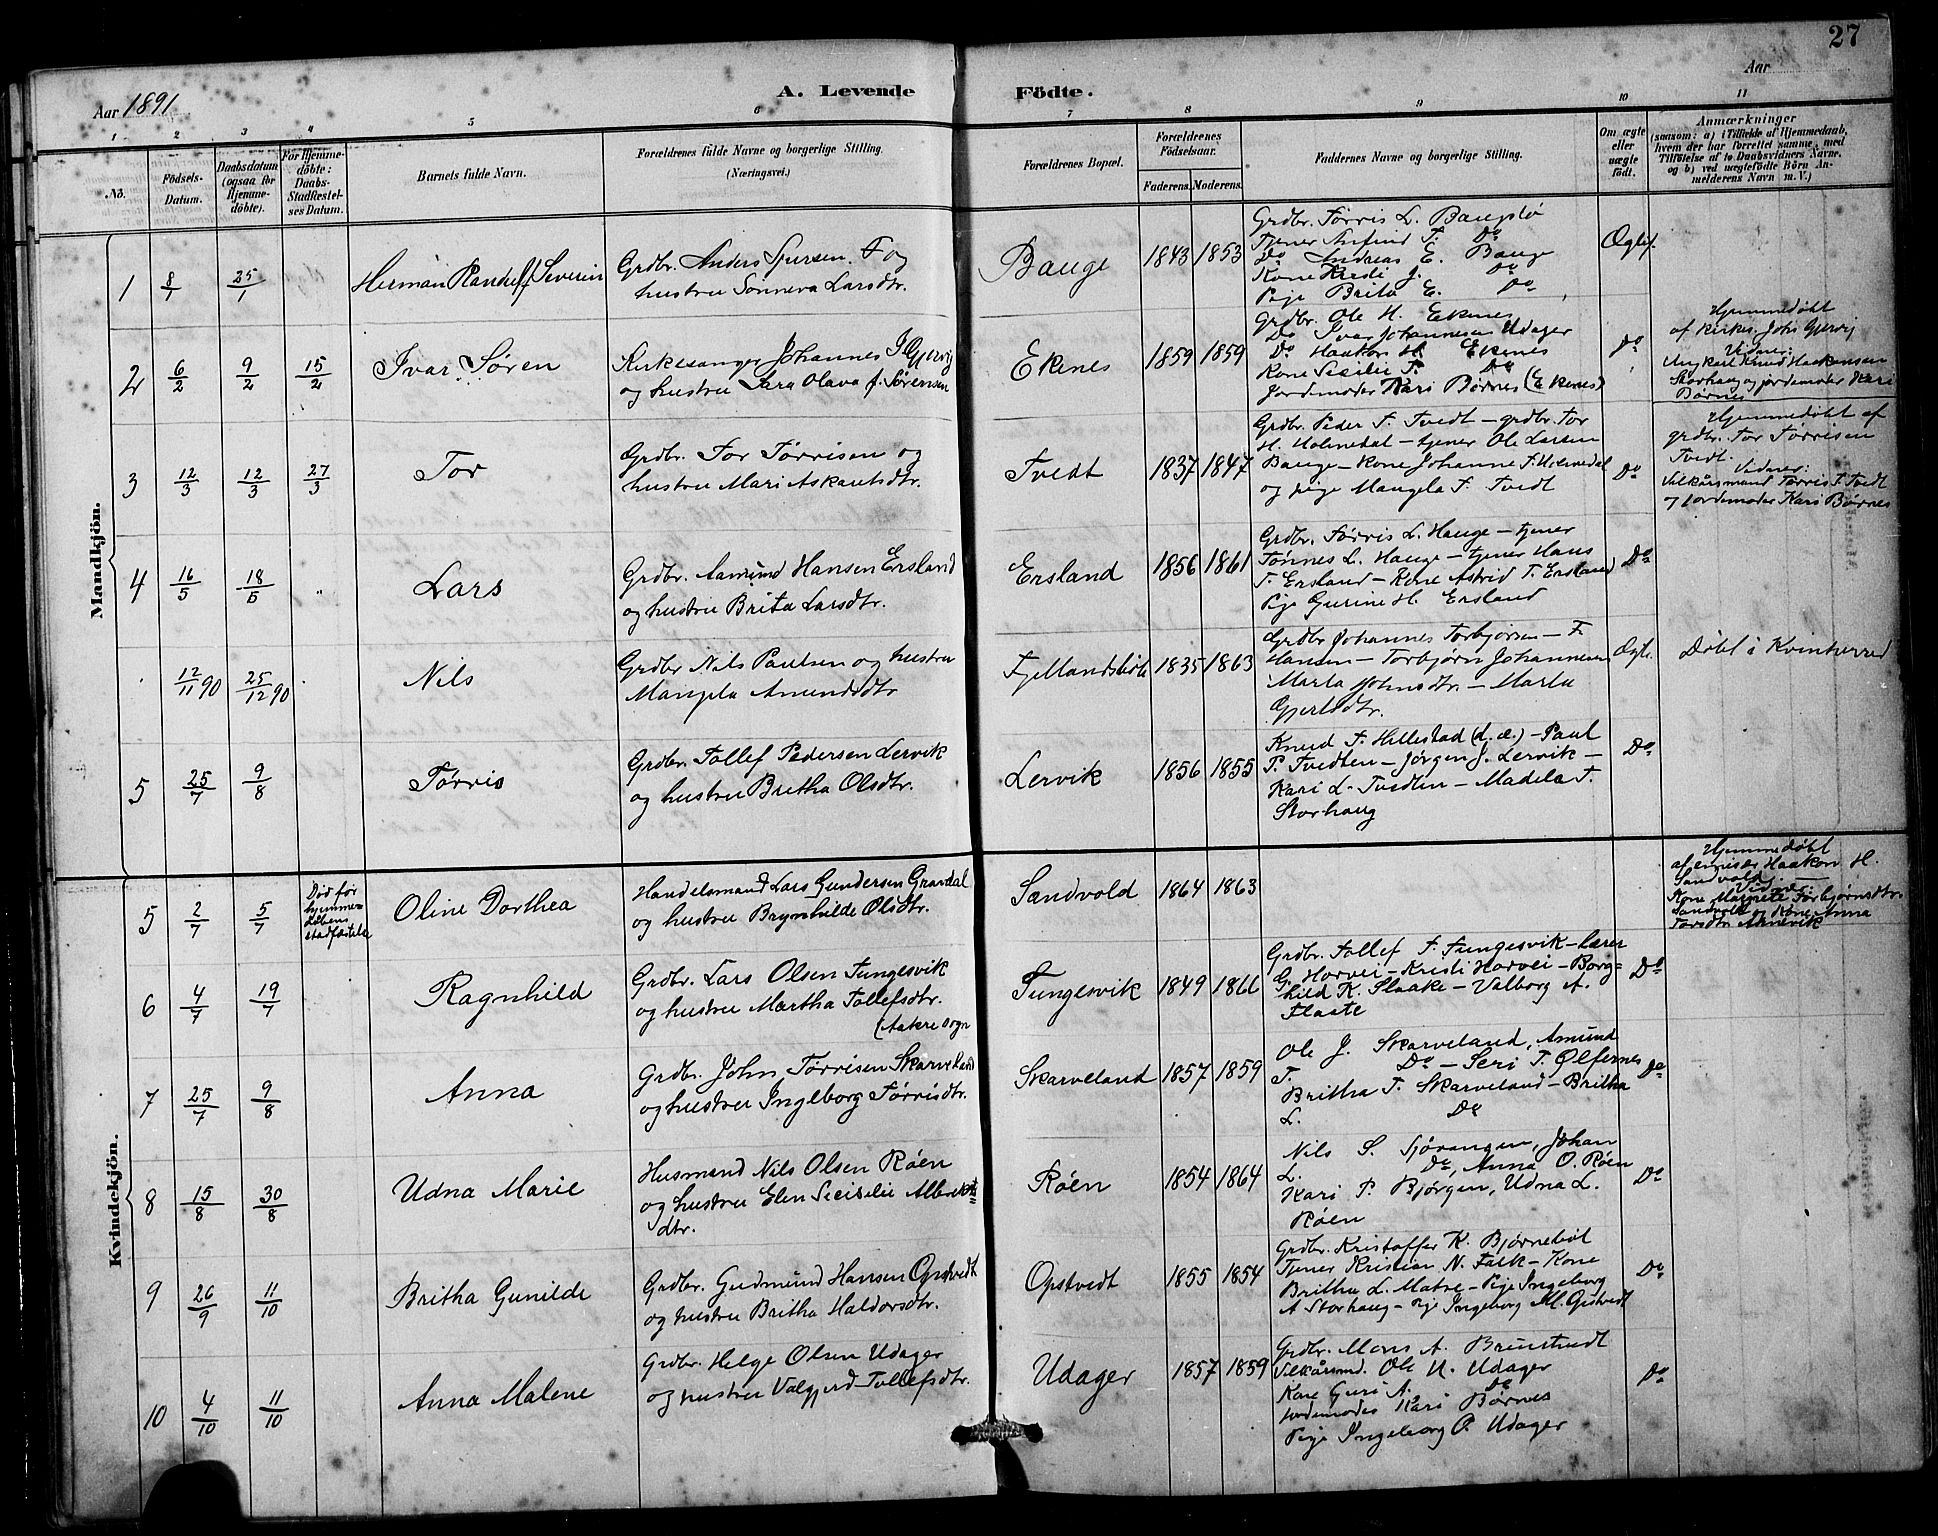 27
Aar 1891
A. Levende Födte.
Aar
1 2 3 4 5 6 7 8 9 10 11
No.
Födsels-Datum.
Daabsdatum (ogsaa for Hjemme-döbte).
For Hjemme-döbte: Daabs-Stadfæstel-ses Datum.
Barnets fulde Navn.
Forældrenes fulde Navne og borgerlige Stilling.
(Næringsvei.)
Forældrenes Bopæl.
Forældrenes Födselsaar.
Faderens. Moderens.
Faddernes Navne og borgerlige Stilling.
Om ægte eller uægte födt.
Anmærkninger
(saasom: a) i Tilfælde af Hjemmedaab,
hvem der har forrettet samme, med
Tilföielse af to Daabsvidners Navne,
og b) ved uægtefödte Börn An-
melderens Navn m. V.)
Mandkjön.
1 8/1 25/1 Herman Randulf Severin
Grdbr. Anders Sjursen. F og
hustru Sønneva Larsdtr.
Bauge 1843 1853
Grdbr. Tørris L. Baugstø
Tjener Anfind T. Do
Do Andreas E. Bauge
Kone J. Do
Pige Brita E. Do
Ægtef.
2 6/2 9/2 15/2 Ivar Søren
Kirkesanger Johannes I Gjervig
og hustru Sara Olava f. Sørensen
Ekenes 1859 1859
Grdbr. Ole H. Ekenes
Do Ivar Johannesen Udager
Do Haakon H. Ekenes
Kone Sesilie T. Do
Jordemoder Kari Børnes (Ekenes)
Do
Hjemmedøbt
af kirkes. John Gjervig
Vidner:
Ungkarl Knud Haakensen
Storhaug og jordemoder Kari
Børnes
3 12/3 12/3 27/3 Tor
Grdbr. Tor Tørrisen og
hustru Mari Askautsdtr.
Tvedt 1837 1847
Grdbr. Peder T. Tvedt – grdbr. Tor
H. Holmedal – tjener Ole Larsen
Bauge – kone Johanne T. Holmedal
og pige Mangela T. Tvedt
Do
Hjemmedøbt af
grdbr. Tor Tørrisen
Tvedt.
Vidner:
Vilkårsmand Tørris T. Tvedt
og jordemoder Kari Børnes
4 16/5 18/5 Lars
Grdbr. Aamund Hansen Ersland
og hustru Brita Larsdtr.
Ersland 1856 1861
Grdbr. Tørris L. Hauge – tjener
Tønnes L. Hauge – tjener Hans
T. Ersland – Kone Astrid T. Ersland
Pige Gurine H. Ersland
Do
12/11 90 25/12 90 Nils
Grdbr Nils Paulsen og hustru
Mangela Amundsdtr
1835 1863
Grdbr Johannes Torbjørsen – F.
Hansen – Torbjørn Johannesen
Marta Johnsdtr. – Marta
Gjertsdtr.
Ægte.
Døbt i Kvinherred
5 25/7 9/8 Tørris
Grdbr. Tollef Pedersen Lervik
og hustru Britha Olsdtr.
Lervik 1856 1855
Knud T. Hillestad (d.æ.) – Paul
P. Tvedten – Jørgen J. Lervik –
Kari L. Tvedten – Madela T.
Storhaug
Do
Kvindekjön.
5 2/7 5/7
Død før
hjemme-
døbens
stadfæstelse
Oline Dorthea
Handelsmand Lars Gundersen Grandal
og hustru Brynhilde Olsdtr.
Sandvold 1864 1863
Hjemmedøbt
af emisær Haakon H.
Sandvold.
Vidner:
Kone Margrete Torbjørnsdtr.
Sandvold og Kone Anna
Torsdtr. Aknevik
6 4/7 19/7 Ragnhild
Grdbr. Lars Olsen Tungesvik
og hustru Martha Tollefsdtr.
(Aakre sogn
Tungesvik 1849 1866
Grdbr. Tollef T. Tungesvik – Lærer
G. Horvei – Kristi Horvei – Borg=
hild K. Slaake – Valborg A.
Flaate
Do
7 25/7 9/8 Anna
Grdbr. John Tørrisen Skarveland
og hustru Ingeborg Tørrisdtr.
Skarveland 1857 1859
Ole J. Skarveland, Amund
T. Do – Seri T. Ølfernes
Britha T. Skarveland – Britha
L. Do
Do
8 15/8 30/8 Udna Marie
Husmand Nils Olsen Røen
og hustru Elen Secisilie Albrekts=
dtr.
Røen 1854 1864
Nils S. Sjøvangen, Johan
L. Do, Anna O. Røen
Kari P. Bjørgen, Udna L.
Røen
Do
9 26/9 11/10 Britha Gunilde
Grdbr. Gudmund Hansen Opstvedt
og hustru Britha Haldorsdtr.
Opstvedt 1855 1854
Grdbr. Kristoffer K. Bjørnebøl
Tjener Kristian N. Falk – Kone
Britha L. Matre – Pige Ingeborg
A Storhaug – Pige Ingeborg M. Opstvedt
Do
10 4/10 11/10 Anna Malene
Grdbr. Helge Olsen Udager
og hustru Valgjerd Tollefsdtr.
Udager 1857 1859
Grdbr. Mons A. Brunstvedt
Vilkårsmd. Ole N. Udager
Kone Guri A. Do
Jordemoder Kari Børnes
Pige Ingeborg O. Udager
Do